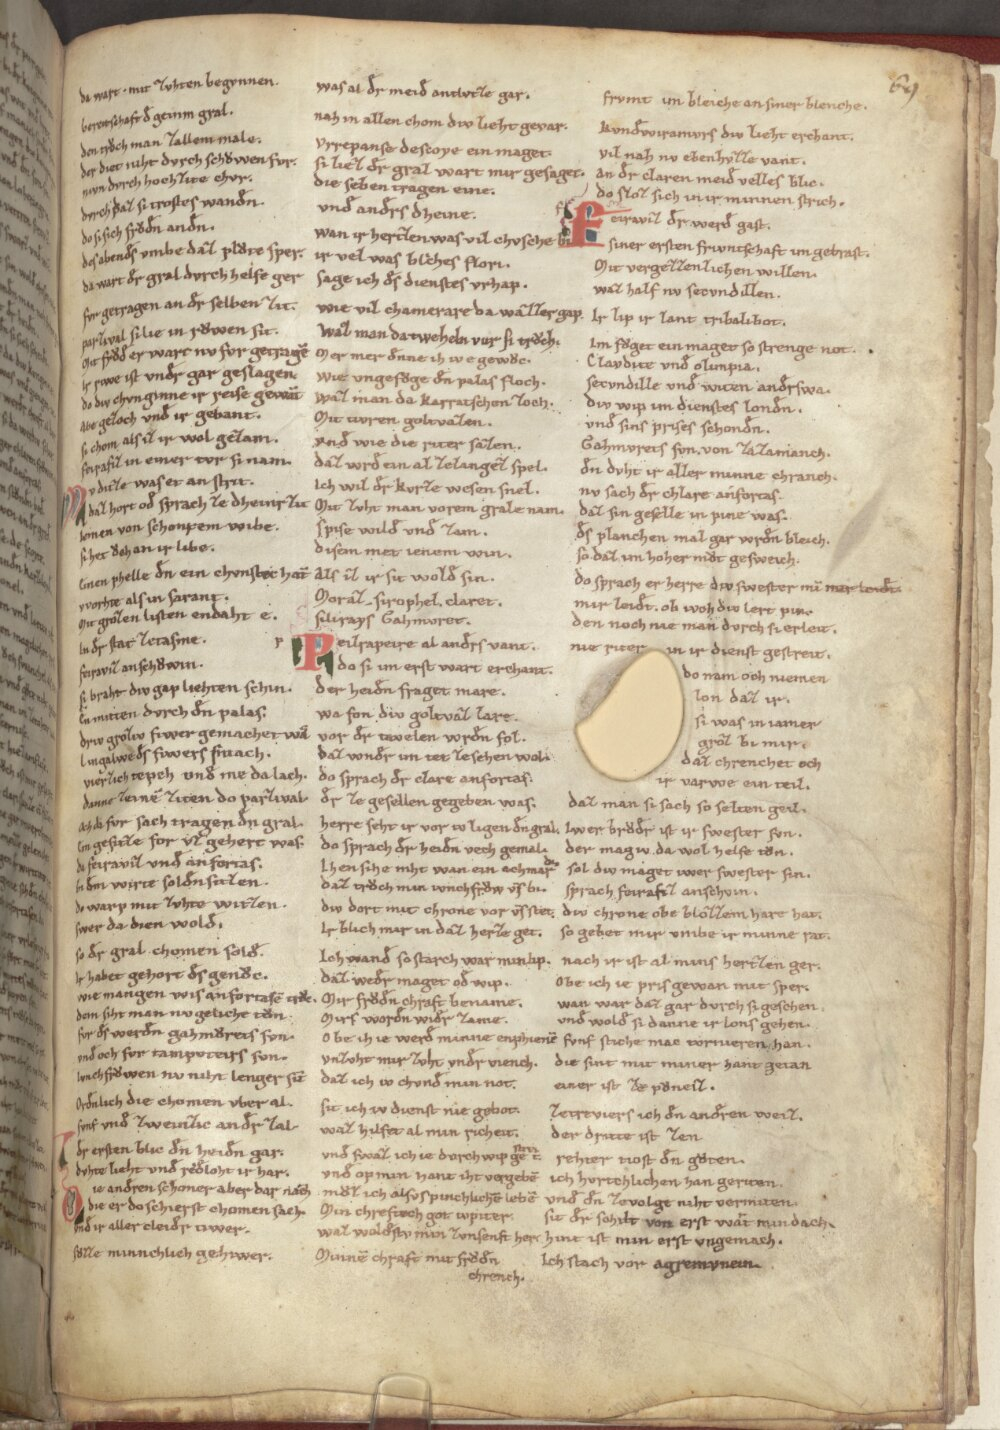 69
da wart · mit zuhten begunnen.
bereitschaft đ geinm gral.
den troch man zallem male.
der diet niht durch schowen fur.
nivn durch hochzite chur.
durch daz si trostes wandn.
do si sich froðn andn.
des abends umbe daz plote sper.
da wart dr gral durch helfe ger
fur getragen an dr selben zit.
parzival si lie in sowen sit.
Mit froð er wart nv fur getragē
ir sowe ist undr gar geslagen.
do div chuniginne ir reise gewāt
Abe gezoch und ir gebant.
si chom als iz ir wol gezam.
feirafiz in einer tvr si nam.
Nv ditze was er an strit.
daz hort od sprach ze dheiner zit
iemen von schonrem wibe.
si het ðch an ir libe.
Einen phelle dn ein chunstec hāt
worhte als in sarant.
Mit grozen listen endaht e.
in dr stat ze tasme.
feiraviz anschowin.
si braht div gap liehten schin.
En mitten durch dn palas.
driv groziv fiwer gemachet wā
lingalwe ds fiwers smach.
vierzich tepch und me da lach.
danne zeine ziten do parzival
ðch da fur sach tragen dn gral.
Ein gesitze for uz gehert was.
da feiraviz und anfortas.
bi dem wirte soldn sitzen.
do warp mit zuhte witzen.
swer da dien wold.
so dr gral chomen sold.
Ir habet gehort ds genoc.
wie mangen wis anfortase troc.
dem siht man nv geliche ton.
fur ds werdn gahmorets sun.
und och fur tamputeirs sun.
ivnchfrowen nv niht lenger sit
Ordnlich die chomen uber al.
funf und zweinzic an dr zal
dr ersten blic dn heidn gar.
duhte lieht und reideloht ir har.
Die andren schoner aber dar nach
die er do schierst chomen sach.
und ir aller cleidr tiwer.
sozze minnchlich gehiwer.
was al dr meid antlutze gar.
nah in allen chom div lieht gevar.
Urrepanse descoye ein maget.
si liez dr gral wart mir gesaget.
die selben tragen eine.
und andrs dheine.
wan ir hertzen was vil chusche bi
ir vel was bliches flori.
sage ich ds dienstes urhap.
wie vil chamerare da wazzer gap.
Waz man da tweheln vor si troch.
Mer mer dnne ih iv e gewoc.
wie ungefoge dn palas floch.
waz man da karratschen zoch.
Mit tivren goltvazen.
und wie die riter sazen.
daz wrd ein al ze langez spel.
ich wil dr kurtze wesen snel.
Mit zuht man vorem grale nam.
spise wild und zam.
disem met ienem win.
als iz ir sit wold sin.
Moraz. sirophel. claret.
filirays Gahmuret.
P
Peilrapeire al andrs vant.
do si im erst wart erchant.
der heidn fraget mare.
wa fon div goltvaz lare.
vor dr tavelen wrdn fol.
daz wndr im tet ze sehen wol.
do sprach dr clare anfortas.
dr ze gesellen gegeben was.
herre seht ir vor iv ligen dn gral.
do sprach dr heidn vech gemal.
Ihen sihe niht wan ein achmardi
daz troch min ivnchfrow uns bi.
div dort mit chrone vor uns stet.
Ir blich mir in daz hertze get.
Ich wand so starch war min lip.
daz wedr maget od wip.
Mir froðn chraft bename.
Mirs wordn widr zame.
Obe ih ie werd minne enphiene
unzuht mir zuht undr viench.
daz ich iv chund min not.
sit ich iv dienst nie gebot.
waz hilfet al min richeit.
und swaz ich ie durch wip gestreit
und op min hant iht vergebē
moz ich alsus pinchliche lebē
Min chreftech got iupiter.
waz woldstu min zunsenft her.
Minnē chraft mit froðn
chrench.
frvmt im bleiche an siner blenche.
Kundwiramurs div lieht erchant.
vil nah nv ebenhvzze vant.
an dr claren meid velles blic.
do sloz sich in ir minnen strich.
Feiraviz dr werd gast.
siner ersten frivntschaft im gebrast.
Mit vergezzenlichen willen.
waz half nv secundillen.
Ir lip ir lant tribalibot.
Im foget ein maget so strenge not.
Claudite und olimpia.
secundille und witen andrswa.
div wip im dienstes londn.
und sins prises schondn.
Gahmurets sun. von zazamanch.
dn duht ir aller minne chranch.
nv sach dr chlare anfortas.
daz sin geselle in pine was.
ds planchen mal gar wrdn bleich.
so daz im hoher mot gesweich.
do sprach er herre div swester mī mir leidt.
mir leidt. ob woh div lert pin.
den noch nie man durch si erleit.
nie riter in ir dienst gestreit.
do nam och niemen
lon daz ir.
si was in iamer
groz bi mir.
daz chrenchet och
ir varwe ein teil.
daz man si sach so selten geil.
Iwer brodr ist ir swester sun.
der mag iv da wol helfe ton.
sol div maget iwer swester sin.
sprach feirafiz anschvin.
div chrone obe blozzem hare hat.
so gebet mir umbe ir minne rat.
nach ir ist al mins hertzen ger.
Obe ich ie pris gewan mit sper.
wan war daz gar durch si geschen
und wold si danne ir lons gehen.
funf stiche mac turnieren han.
die sint mit miner hant getan
einer ist ze poneiz.
ze treviers ich dn andren weiz.
der dritte ist zen
rehter tiost dn goten.
ich hurtchlichen han geriten.
und dn zevolge niht vermiten.
sit dr schilt von erst wart min dach.
hiut ist min erst ungemach.
Ich stach vor agremunein.